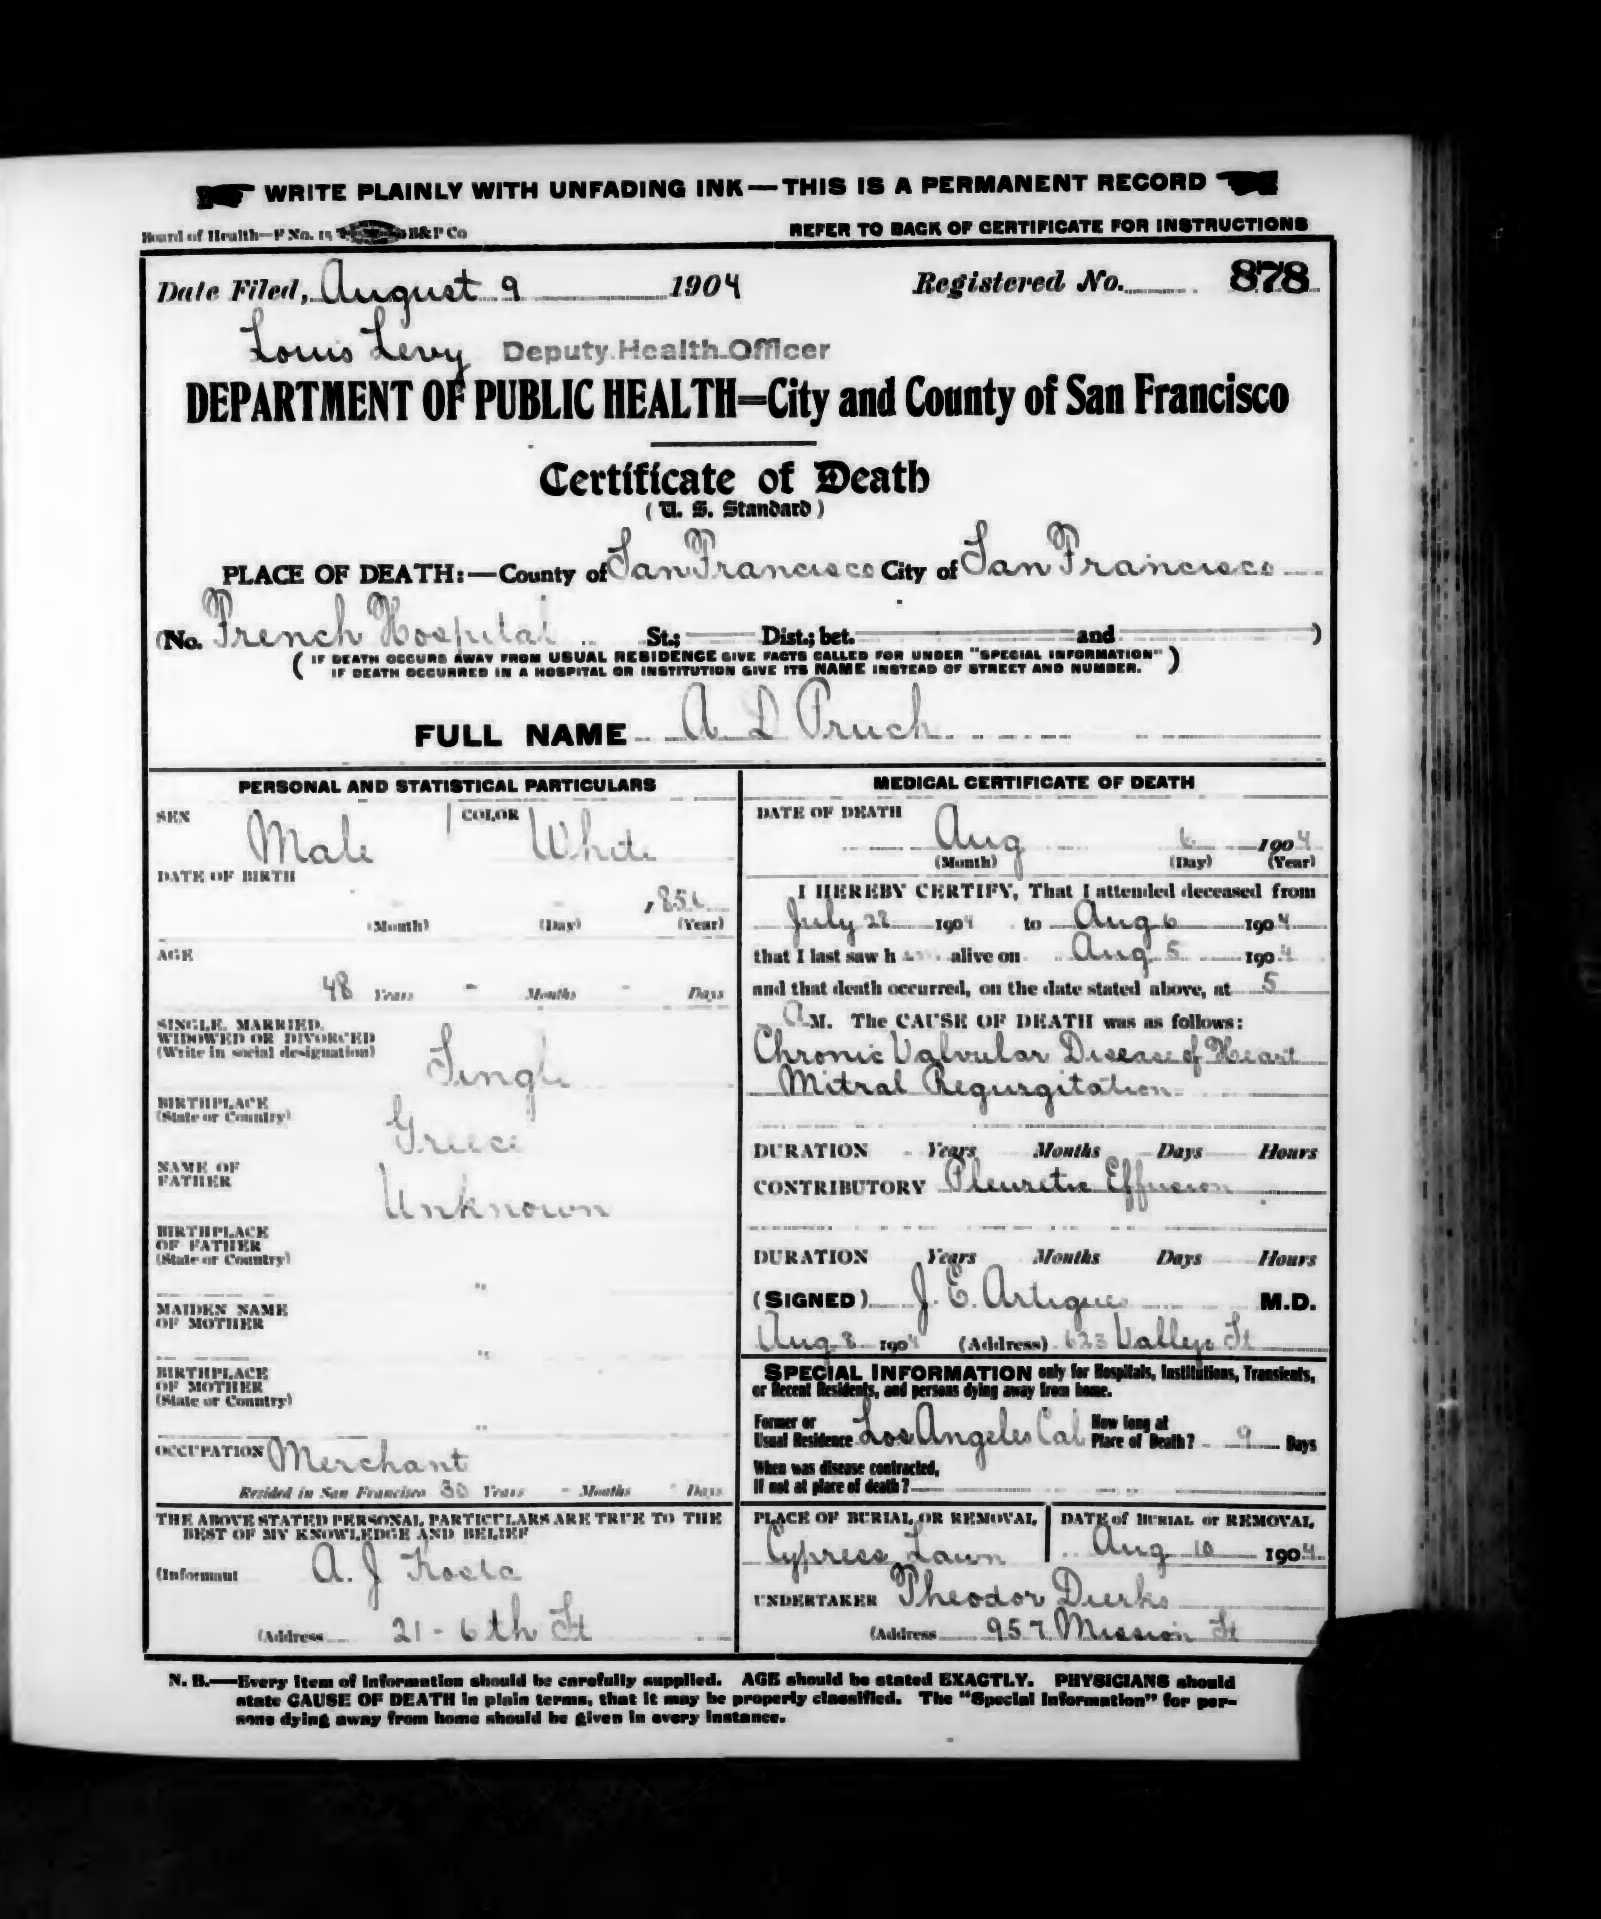 WRITE PLAINLY WITH UNFADING INK—THIS IS A PERMANENT RECORD
Board of Health—F No. 15 B&P Co REFER TO BACK OF CERTIFICATE FOR INSTRUCTIONS
Date Filed, August 9 1904 Registered No. 878
Louis Levy Deputy Health Officer
DEPARTMENT OF PUBLIC HEALTH=City and County of San Francisco
Certificate of Death
(U. S. Standard)
PLACE OF DEATH:—County of San Francisco City of San Francisco
(No. French Hospital St.; Dist.; bet. and )
(IF DEATH OCCURS AWAY FROM USUAL RESIDENCE GIVE FACTS CALLED FOR UNDER "SPECIAL INFORMATION"
IF DEATH OCCURRED IN A HOSPITAL OR INSTITUTION GIVE ITS NAME INSTEAD OF STREET AND NUMBER.)
FULL NAME A D Pruch
PERSONAL AND STATISTICAL PARTICULARS
SEX Male COLOR White
DATE OF BIRTH
1856
(Month) (Day) (Year)
AGE
48 Years - Months - Days
SINGLE, MARRIED,
WIDOWED OR DIVORCED
(Write in social designation) Single
BIRTHPLACE
(State or Country) Greece
NAME OF
FATHER Unknown
BIRTHPLACE
OF FATHER
(State or Country) "
MAIDEN NAME
OF MOTHER "
BIRTHPLACE
OF MOTHER
(State or Country) "
OCCUPATION Merchant
Resided in San Francisco 30 Years - Months - Days
THE ABOVE STATED PERSONAL PARTICULARS ARE TRUE TO THE
BEST OF MY KNOWLEDGE AND BELIEF
(Informant A. J.
(Address 21 - 6th St
MEDICAL CERTIFICATE OF DEATH
DATE OF DEATH
Aug 6 1904
(Month) (Day) (Year)
I HEREBY CERTIFY, That I attended deceased from
July 28 1904 to Aug 6 1904
that I last saw h alive on Aug 5 1904
and that death occurred, on the date stated above, at 5
A M. The CAUSE OF DEATH was as follows:
Chronic Valvular Disease of Heart
Mitral Regurgitation
DURATION Years Months Days Hours
CONTRIBUTORY Pleuretic Effusion
DURATION Years Months Days Hours
(SIGNED) J. E. Artigues M.D.
Aug 8 1904 (Address) 623 Vallejo St
SPECIAL INFORMATION only for Hospitals, Institutions, Transients,
or Recent Residents, and persons dying away from home.
Former or
Usual Residence Los Angeles Cal How long at
Place of Death? 9 Days
When was disease contracted,
If not at place of death?
PLACE OF BURIAL OR REMOVAL DATE of BURIAL or REMOVAL
Cypress Lawn Aug 10 1904
UNDERTAKER Theodor Dierks
(Address 957 Mission St
N. B.—Every item of information should be carefully supplied. AGE should be stated EXACTLY. PHYSICIANS should
state CAUSE OF DEATH in plain terms, that it may be properly classified. The "Special Information" for per-
sons dying away from home should be given in every instance.